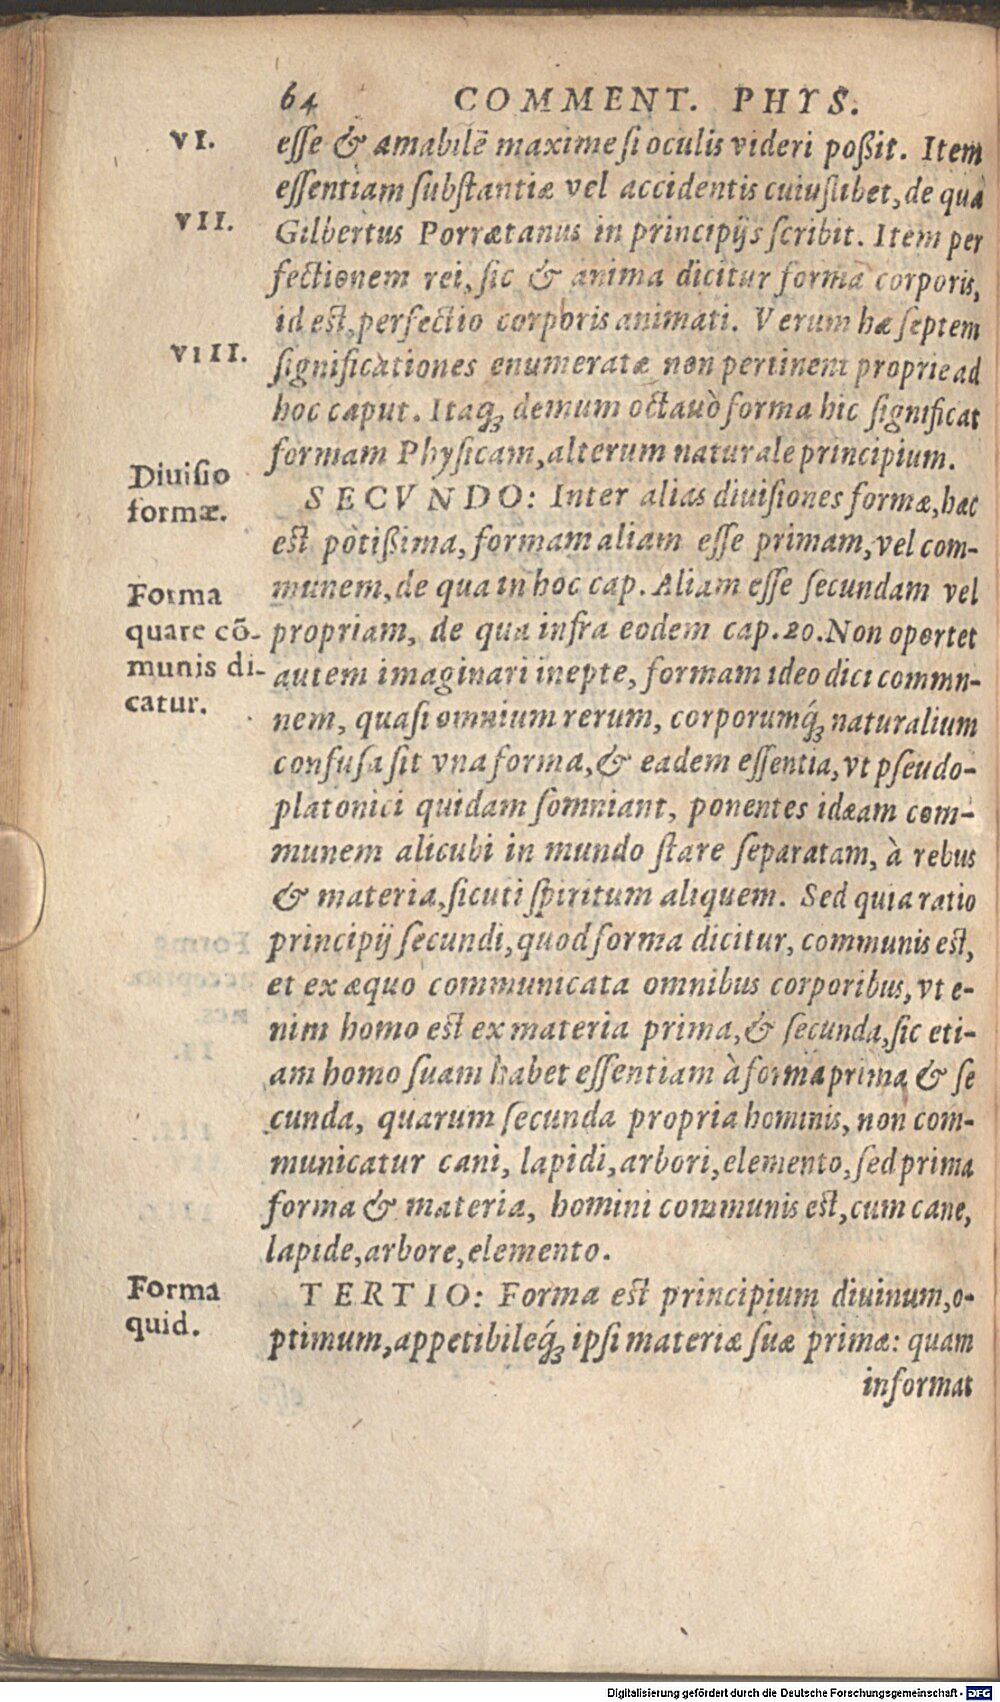 64 COMMENT. PHYS.
VI.
eſſe & amabilē maxime ſi oculis videri poßit. Item
eſſentiam ſubſtantiæ vel accidentis cuiuſlibet, de qua
VII.
Gilbertus Porrætanus in principijs ſcribit. Item per
fectionem rei, ſic & anima dicitur forma corporis,
id eſt, perfectio corporis animati. Verum hæ ſeptem
VIII.
ſignificationes enumeratæ non pertinent proprie ad
hoc caput. Itaq; demum octauò forma hic ſignificat
formam Phyſicam, alterum naturale principium.
Diuiſio
formæ.
SECVNDO: Inter alias diuiſiones formæ, hæc
eſt potißima, formam aliam eſſe primam, vel com-
munem, de qua in hoc cap. Aliam eſſe ſecundam vel
Forma
quare cō-
munis di-
catur.
propriam, de qua infra eodem cap. 20. Non oportet
autem imaginari inepte, formam ideo dici commn-
nem, quaſi omnium rerum, corporumq́; naturalium
confuſa ſit vna forma, & eadem eſſentia, vt pſeudo-
platonici quidam ſomniant, ponentes idæam com-
munem alicubi in mundo ſtare ſeparatam, à rebus
& materia, ſicuti ſpiritum aliquem. Sed quia ratio
principij ſecundi, quod forma dicitur, communis eſt,
et ex æquo communicata omnibus corporibus, vt e-
nim homo eſt ex materia prima, & ſecunda, ſic eti-
am homo ſuam habet eſſentiam à forma prima & ſe
cunda, quarum ſecunda propria hominis, non com-
municatur cani, lapidi, arbori, elemento, ſed prima
forma & materia, homini communis eſt, cum cane,
lapide, arbore, elemento.
Forma
quid.
TERTIO: Forma eſt principium diuinum, o-
ptimum, appetibileq́; ipſi materiæ ſuæ primæ: quam
informat
Digitalisierung gefördert durch die Deutsche Forschungsgemeinschaft - DFG